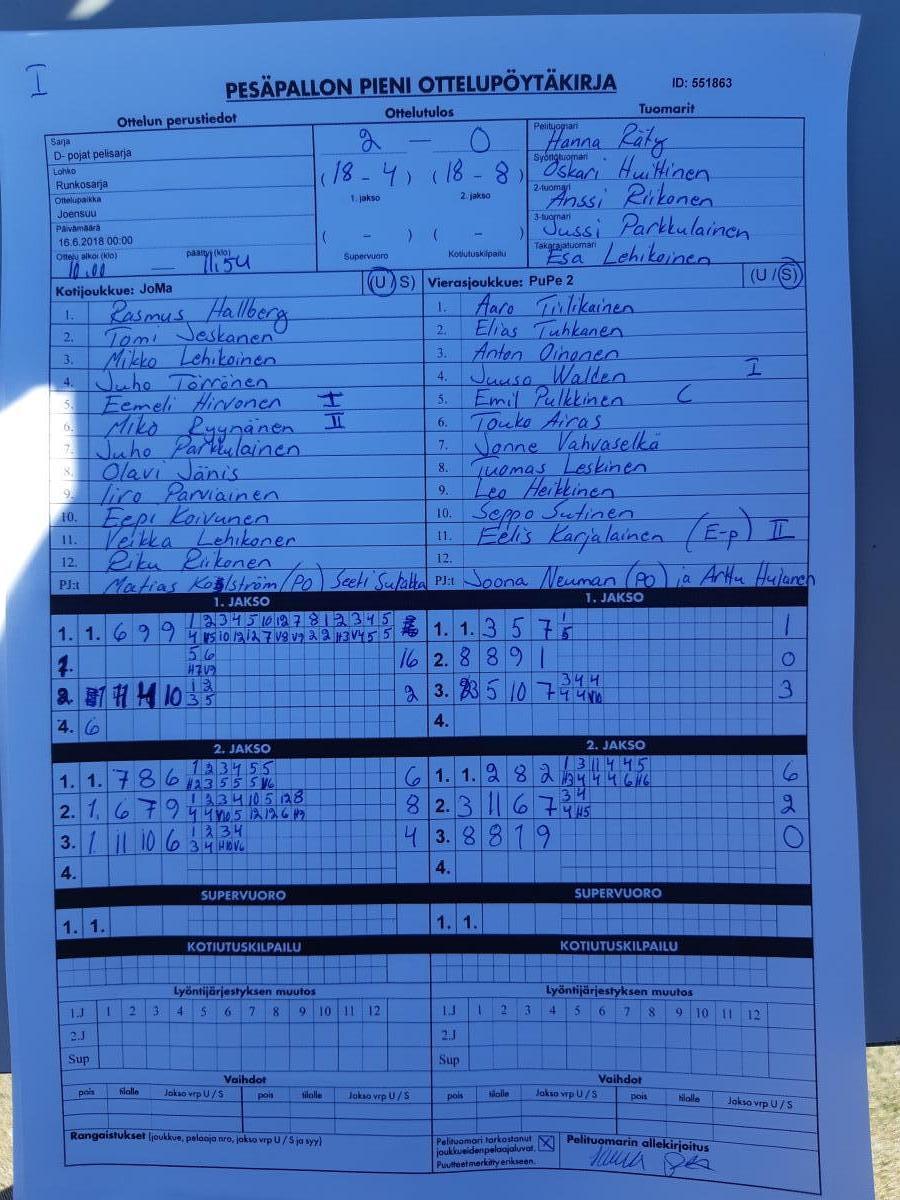 I
PESÄPALLON PIENI OTTELUPÖYTÄKIRJA
ID: 551863
Ottelun perustiedot
Ottelutulos
Tuomarit
Sarja
D- pojat pelisarja
Lohko
Runkosarja
Ottelupaikka
Joensuu
Päivämäärä
16.6.2018 00:00
Ottelu alkoi (klo) päättyi (klo)
10.00 — 11.54
2 — 0
(18 - 4) (18 - 8)
1. jakso 2. jakso
( - ) ( - )
Supervuoro Kotiutuskilpailu
Pelituomari
Hanna Räty
Syöttötuomari
Oskari Huittinen
2-tuomari
Anssi Riikonen
3-tuomari
Jussi Parkkulainen
Takarajatuomari
Esa Lehikoinen
Kotijoukkue: JoMa (U/S)
1. Rasmus Hallberg
2. Tomi Jeskanen
3. Mikko Lehikoinen
4. Juho Törrönen
5. Eemeli Hirvonen I
6. Miko Ryynänen II
7. Juho Parkkulainen
8. Olavi Jänis
9. Iiro Parviainen
10. Eepi Koivunen
11. Veikka Lehikoner
12. Riku Riikonen
PJ:t Matias (PO)
Vierasjoukkue: PuPe 2 (U/S)
1. Aaro Tiilikainen
2. Elias Tuhkanen
3. Anton Oinonen
4. Juuso Walden I
5. Emil Pulkkinen C
6. Touko Airas
7. Jonne Vahvaselkä
8. Tuomas Leskinen
9. Leo Heikkinen
10. Seppo Sutinen
11. Eelis Karjalainen (E-p) II
12.
PJ:t Joona Neuman (PO) ja Arttu Hujanen
1. JAKSO
1. 1. 6 9 9
1 2 3 4 5 10 12 7 8 1 2 3 4 5
5 6
16
10 1 2
3 5
2
4. 6
1. JAKSO
1. 1. 3 5 7 1
2. 8 8 9 1 0
3. 5 10 7 3 4 4 3
4.
2. JAKSO
1. 1. 7 8 6 1 2 3 4 5 5 6
2. 1. 6 7 9 1 2 3 4 10 5 12 8 8
3. 1 11 10 6 1 2 3 4 4
4.
2. JAKSO
1. 1. 2 8 2 1 3 11 4 4 5 6
2. 3 11 6 7 3 4 2
3. 8 8 1 9 0
4.
SUPERVUORO
1. 1.
SUPERVUORO
1. 1.
KOTIUTUSKILPAILU
KOTIUTUSKILPAILU
Lyöntijärjestyksen muutos
1.J 1 2 3 4 5 6 7 8 9 10 11 12
2.J
Sup
Lyöntijärjestyksen muutos
1.J 1 2 3 4 5 6 7 8 9 10 11 12
2.J
Sup
Vaihdot
pois tilalle Jakso vrp U / S pois tilalle Jakso vrp U / S
Vaihdot
pois tilalle Jakso vrp U / S pois tilalle Jakso vrp U / S
Rangaistukset (joukkue, pelaaja nro, jakso vrp U / S ja syy)
Pelituomari tarkastanut
joukkueiden pelaajaluvat.
Puutteet merkitty erikseen.
Pelituomarin allekirjoitus